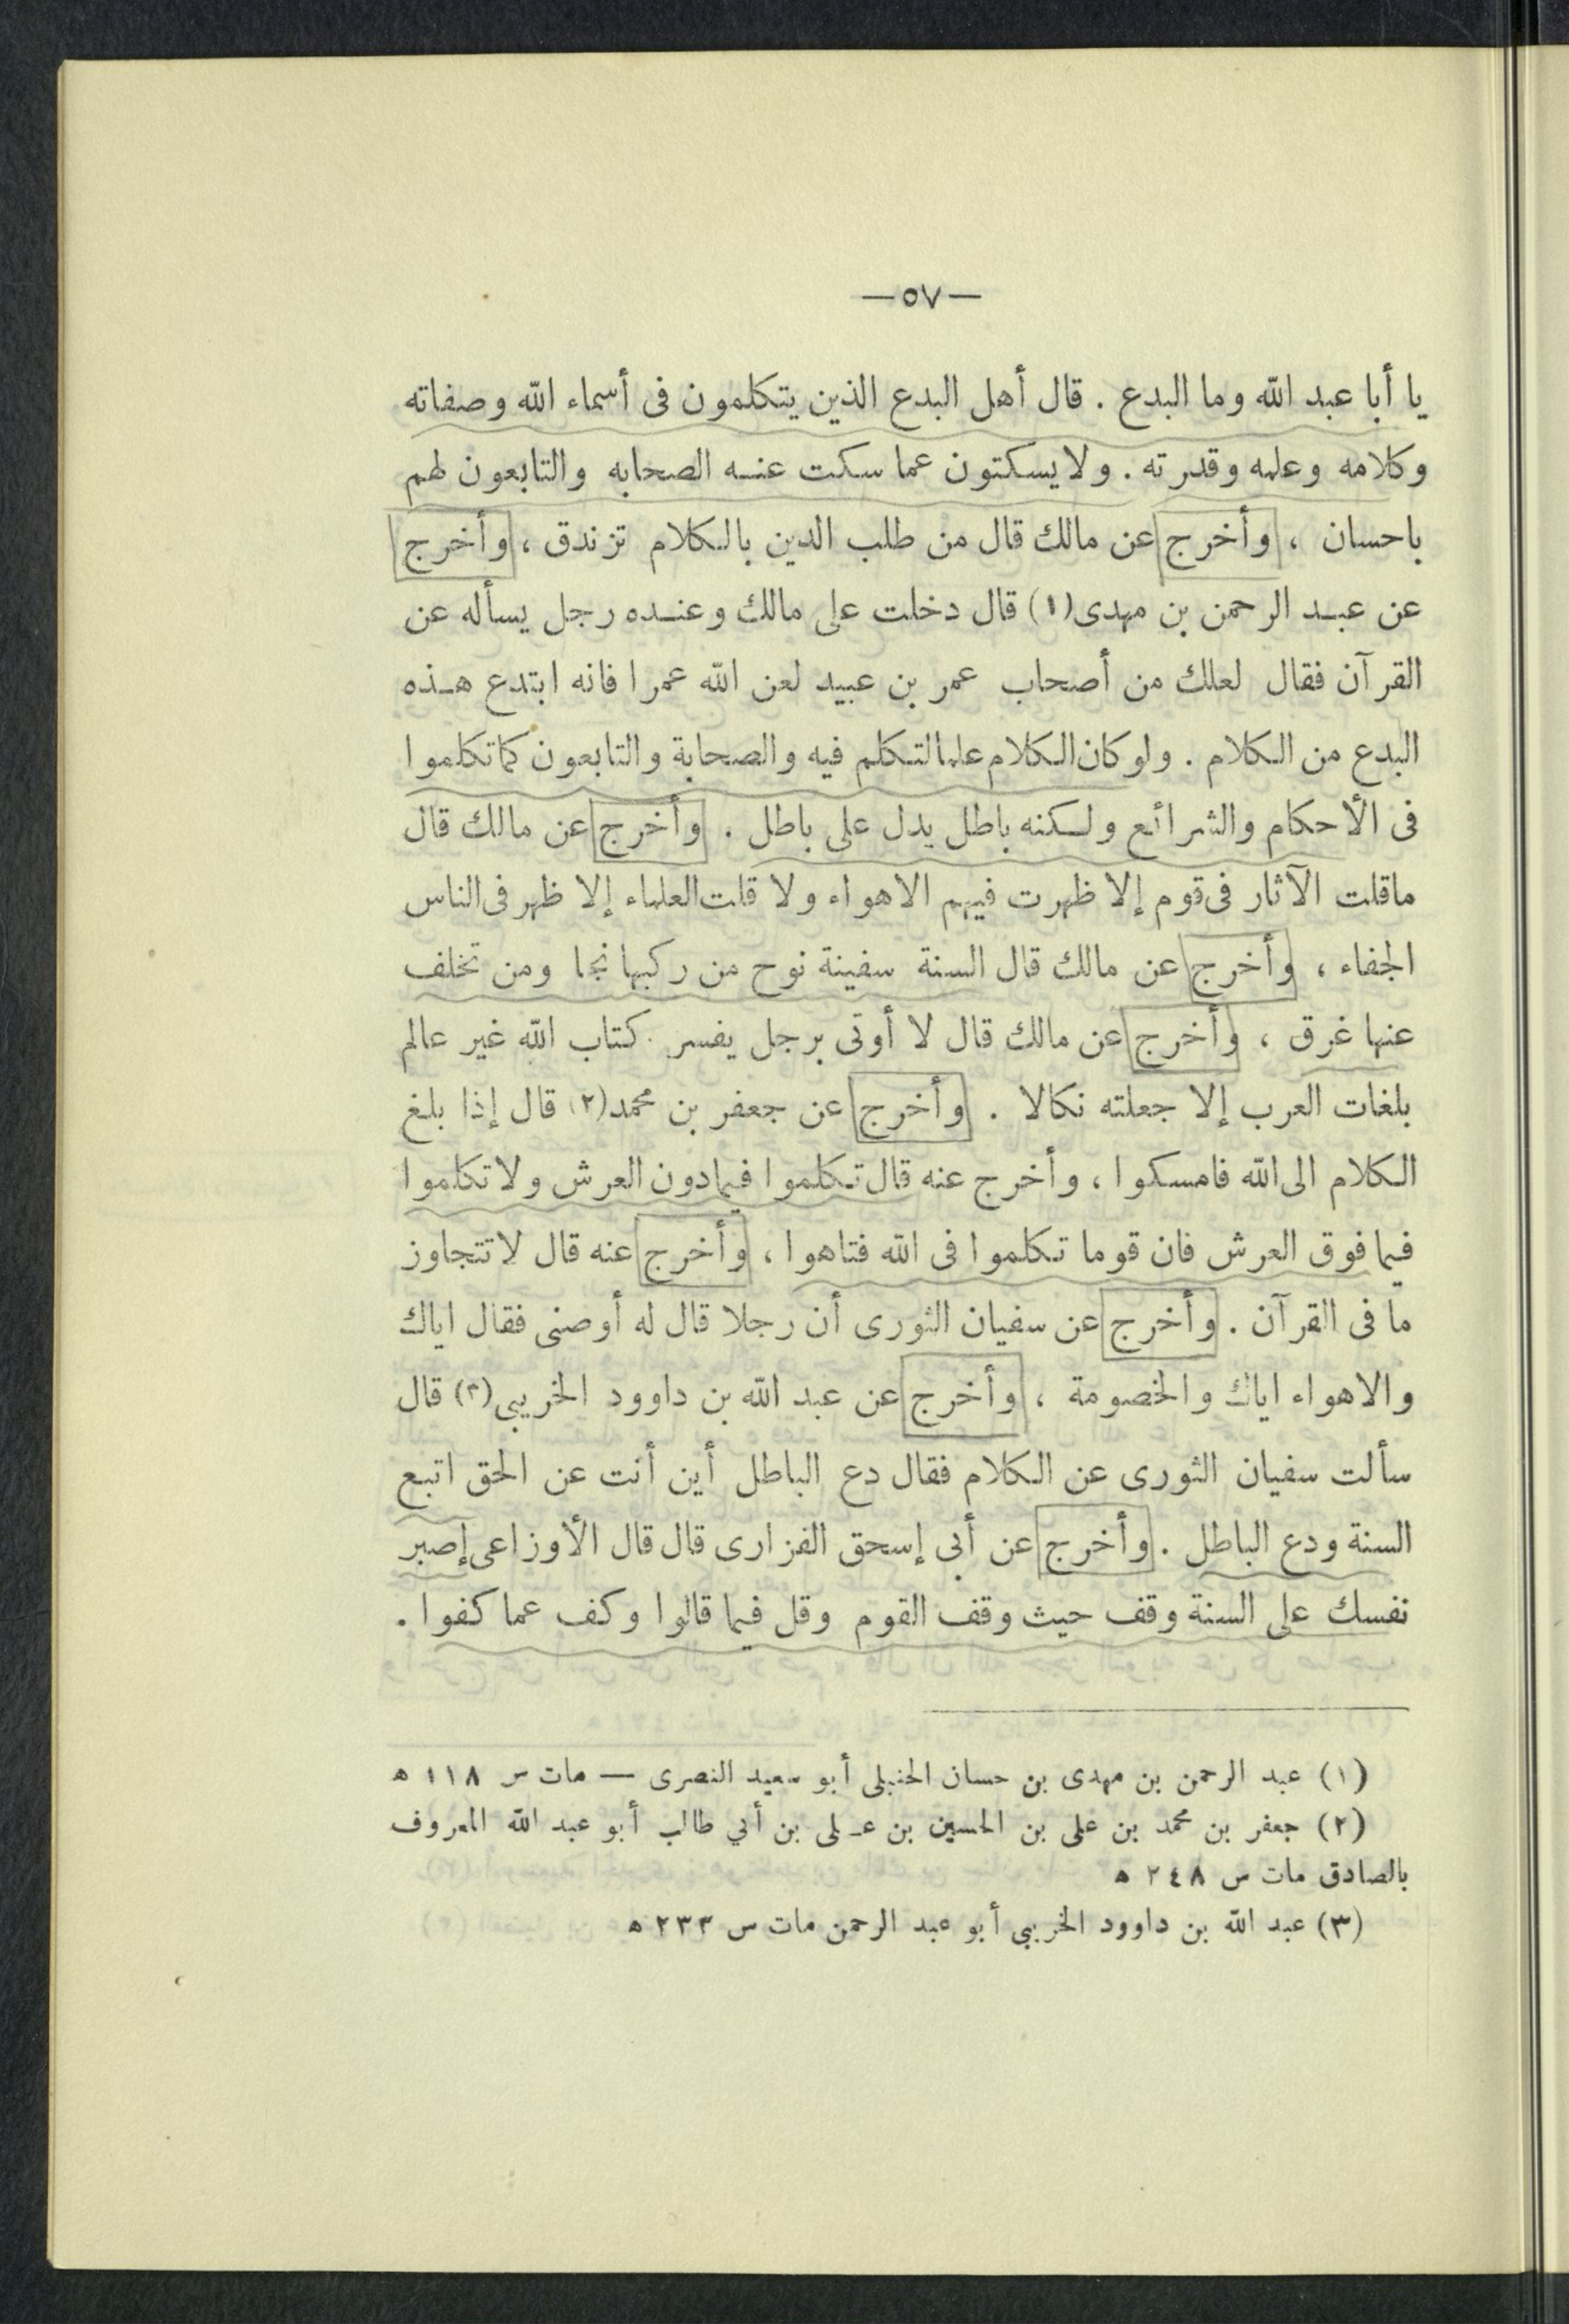 —٥٧—
يا أبا عبد الله وما البدع . قال أهل البدع الذين يتكلمون فى أسماء الله وصفاته
وكلامه وعلمه وقدرته . ولا يسكتون عما سكت عنه الصحابه والتابعون لهم
باحسان ، وأخرج عن مالك قال من طلب الدين بالكلام تزندق ، وأخرج
عن عبد الرحمن بن مهدى (١) قال دخلت على مالك وعنده رجل يسأله عن
القرآن فقال لعلك من أصحاب عمر بن عبيد لعن الله عمرا فانه ابتدع هذه
البدع من الكلام . ولو كان الكلام علما لتكلم فيه والصحابة والتابعون كما تكلموا
فى الأحكام والشرائع ولكنه باطل يدل على باطل . وأخرج عن مالك قال
ماقلت الآثار فى قوم إلا ظهرت فيهم الاهواء ولا قلت العلماء إلا ظهر فى الناس
الجفاء ، وأخرج عن مالك قال السنة سفينة نوح من ركبها نجا ومن تخلف
عنها غرق ، وأخرج عن مالك قال لا أوتى برجل يفسر كتاب الله غير عالم
بلغات العرب إلا جعلته نكالا . وأخرج عن جعفر بن محمد (٢) قال إذا بلغ
الكلام الى الله فامسكوا ، وأخرج عنه قال تكلموا فيمادون العرش ولا تكلموا
فيما فوق العرش فان قوما تكلموا فى الله فتاهوا ، وأخرج عنه قال لا تتجاوز
ما فى القرآن . وأخرج عن سفيان الثورى أن رجلا قال له أوصنى فقال اياك
والاهواء اياك والخصومة ، وأخرج عن عبد الله بن داوود الخريبى (٣) قال
سألت سفيان الثورى عن الكلام فقال دع الباطل أين أنت عن الحق اتبع
السنة ودع الباطل . وأخرج عن أبى إسحق الفزارى قال قال الأوزاعى إصبر
نفسك على السنة وقف حيث وقف القوم وقل فيما قالوا وكف عما كفوا .
(١) عبد الرحمن بن مهدى بن حسان الحنبلى أبو سعيد النصرى — مات س ١١٨ ه
(٢) جعفر بن محمد بن على بن الحسين بن على بن أبي طالب أبو عبد الله المعروف
بالصادق مات س ٢٤٨ ه
(٣) عبد الله بن داوود الخريبي أبو عبد الرحمن مات س ٢٣٣ ه